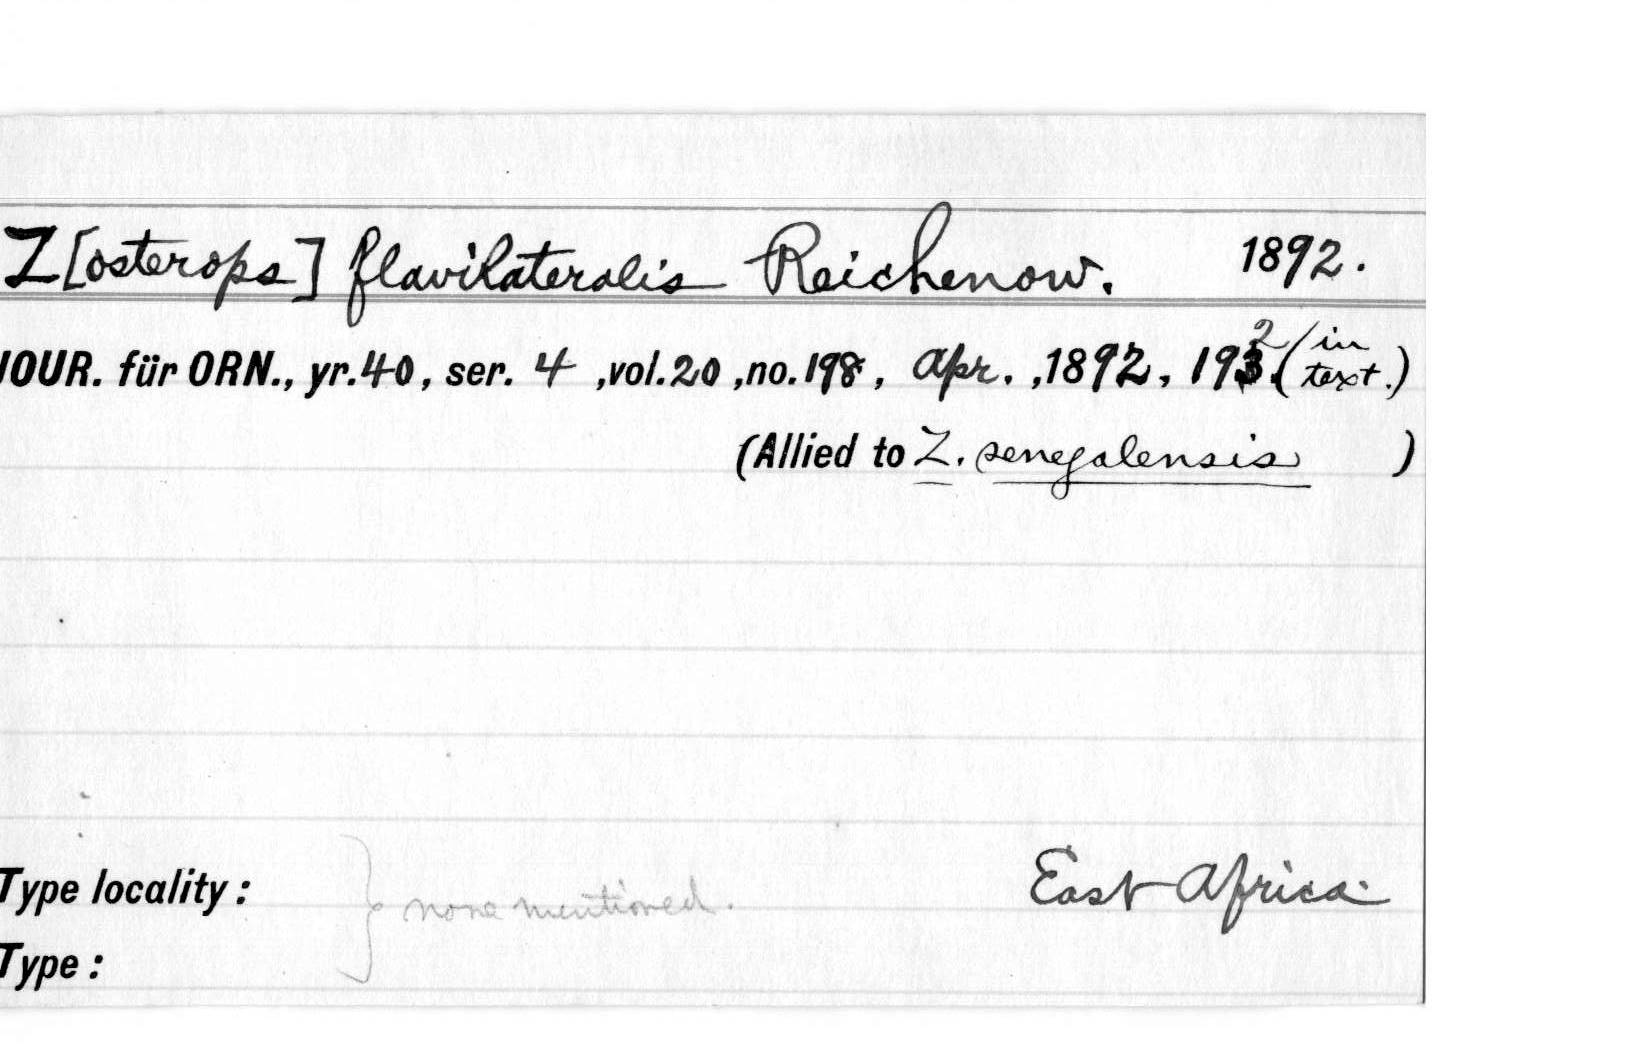 Z[osterops] flavilateralis Reichenow. 1892.
JOUR. für ORN., yr. 40, ser. 4 ,vol. 20 ,no. 198, Apr. ,1892, 192 (in text.)
(Allied to Z. senegalensis )
Type locality : } none mentioned. East Africa.
Type :